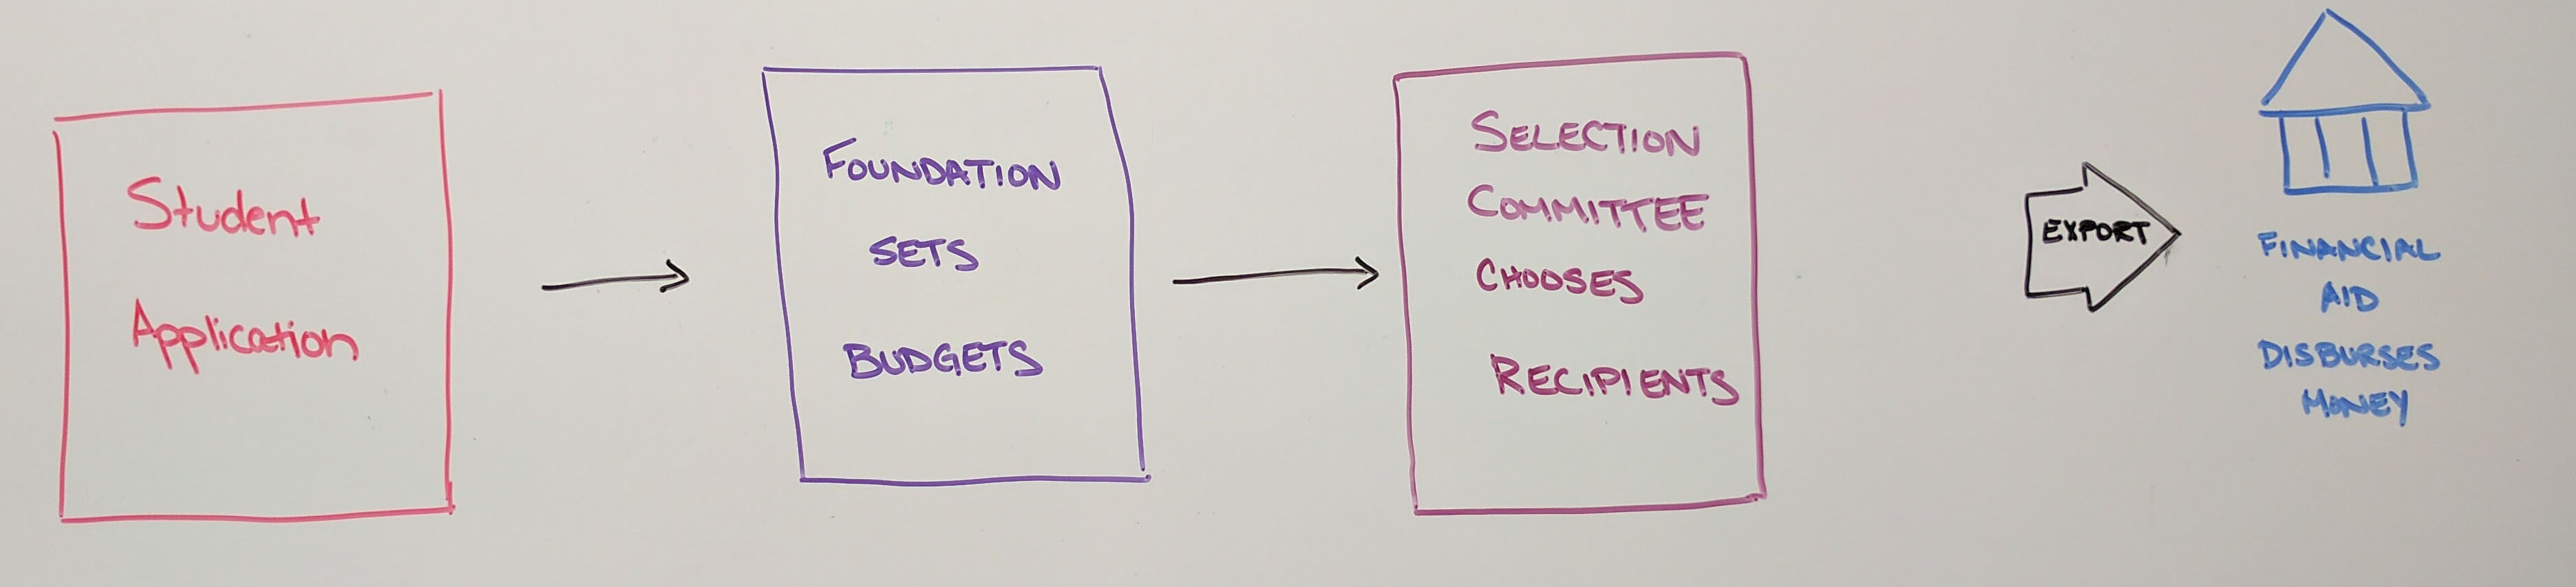 Student
Application
FOUNDATION
SETS
BUDGETS
SELECTION
COMMITTEE
CHOOSES
RECIPIENTS
EXPORT
FINANCIAL
AID
DISBURSES
MONEY